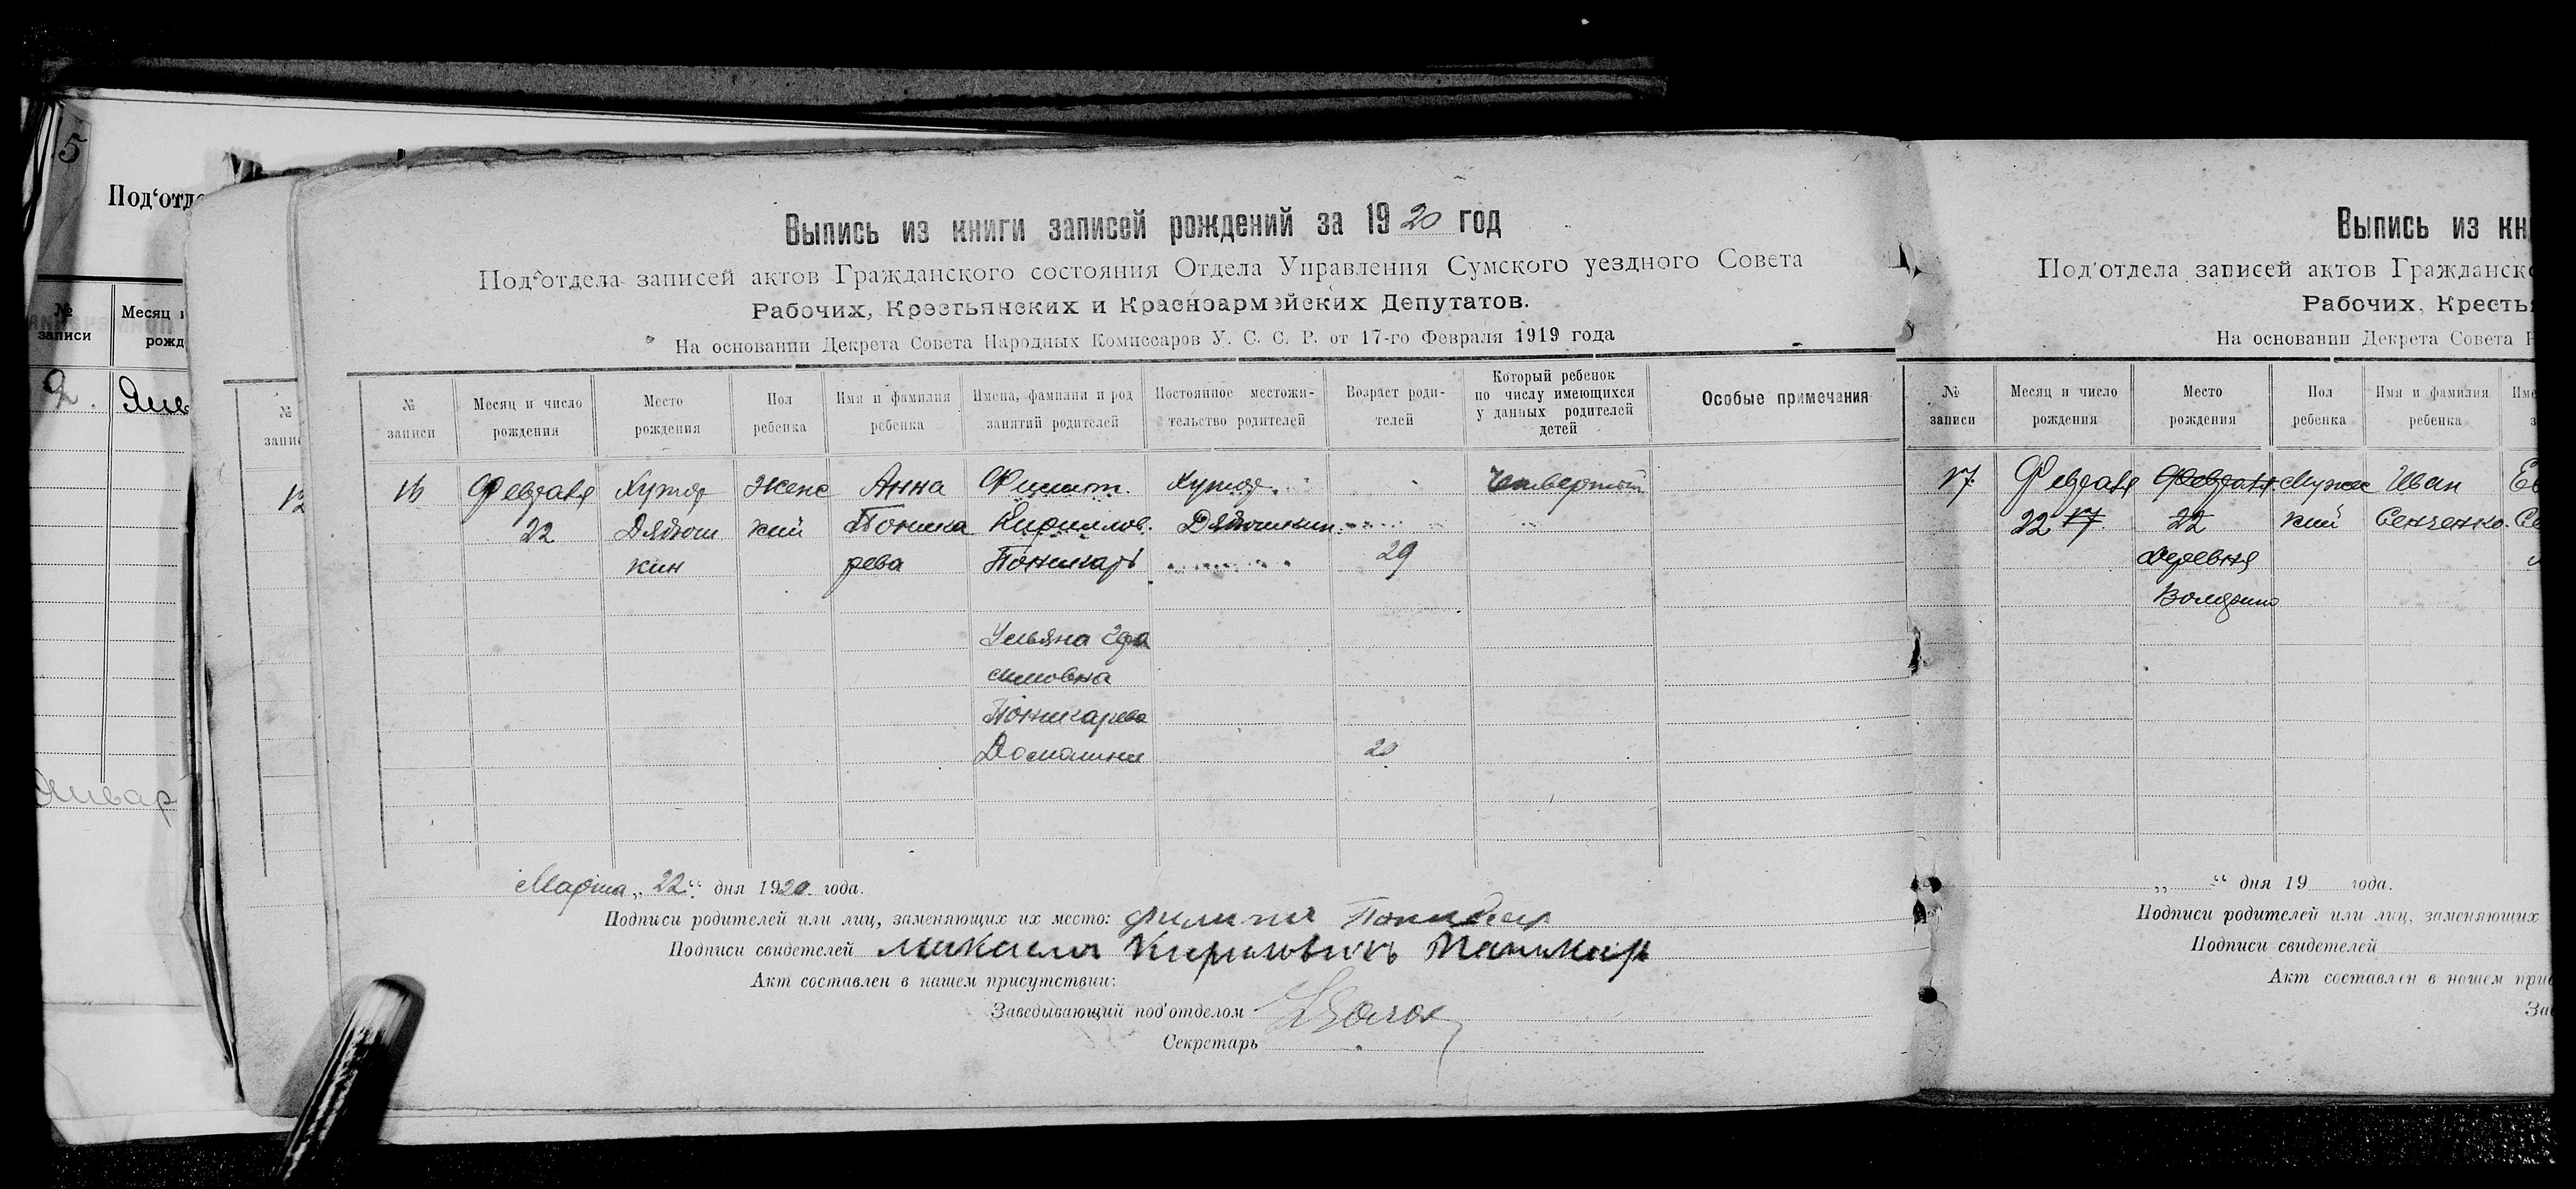 5
Под‘отде
№
записи
Месяц и
рожд
2.
Янв
Январ
№
запис
12
Выпись из книги записей рождений за 1920 год
Под‘отдела записей актов Гражданского состояния Отдела Управления Сумского уездного Совета
Рабочих, Крестьянских и Красноармейских Депутатов.
На основании Декрета Совета Народных Комиссаров У. С. С. Р. от 17-го Февраля 1919 года
№
записи
Месяц и число
рождения
Место
рождения
Пол
ребенка
Имя и фамилия
ребенка
Имена, фамилии и род
занятий родителей
Постоянное местожи-
тельство родителей
Возраст роди-
телей
Который ребенок
по числу имеющихся
у данных родителей
детей
Особые примечания
16 Февраля Хутор Женс Анна Филип. Хутор. Четвертый
22 Дядюш кий Поника Кирилов. Дядюшкин
кин рева Поникарь 29
Ульяна
симовна
Поникарева
Домашнее 20
Марта „22“ дня 1920 года.
Подписи родителей или лиц, заменяющих их место: филипъ
Подписи свидетелей Михаилъ Кириловичъ
Акт составлен в нашем присутствии:
Заведывающий под‘отделом
Секретарь
Выпись из кн
Под‘отдела записей актов Гражданско
Рабочих, Крестья
На основании Декрета Совета Н
№
записи
Месяц и число
рождения
Место
рождения
Пол
ребенка
Имя и фамилия
ребенка
Име
з
17. Февраля Февраля Мужс Иван Ев
22 17 22 кий Сенченко. Се
Деревня
„ “ дня 19 года.
Подписи родителей или лиц, заменяющих
Подписи свидетелей
Акт составлен в нашем прис
Зав